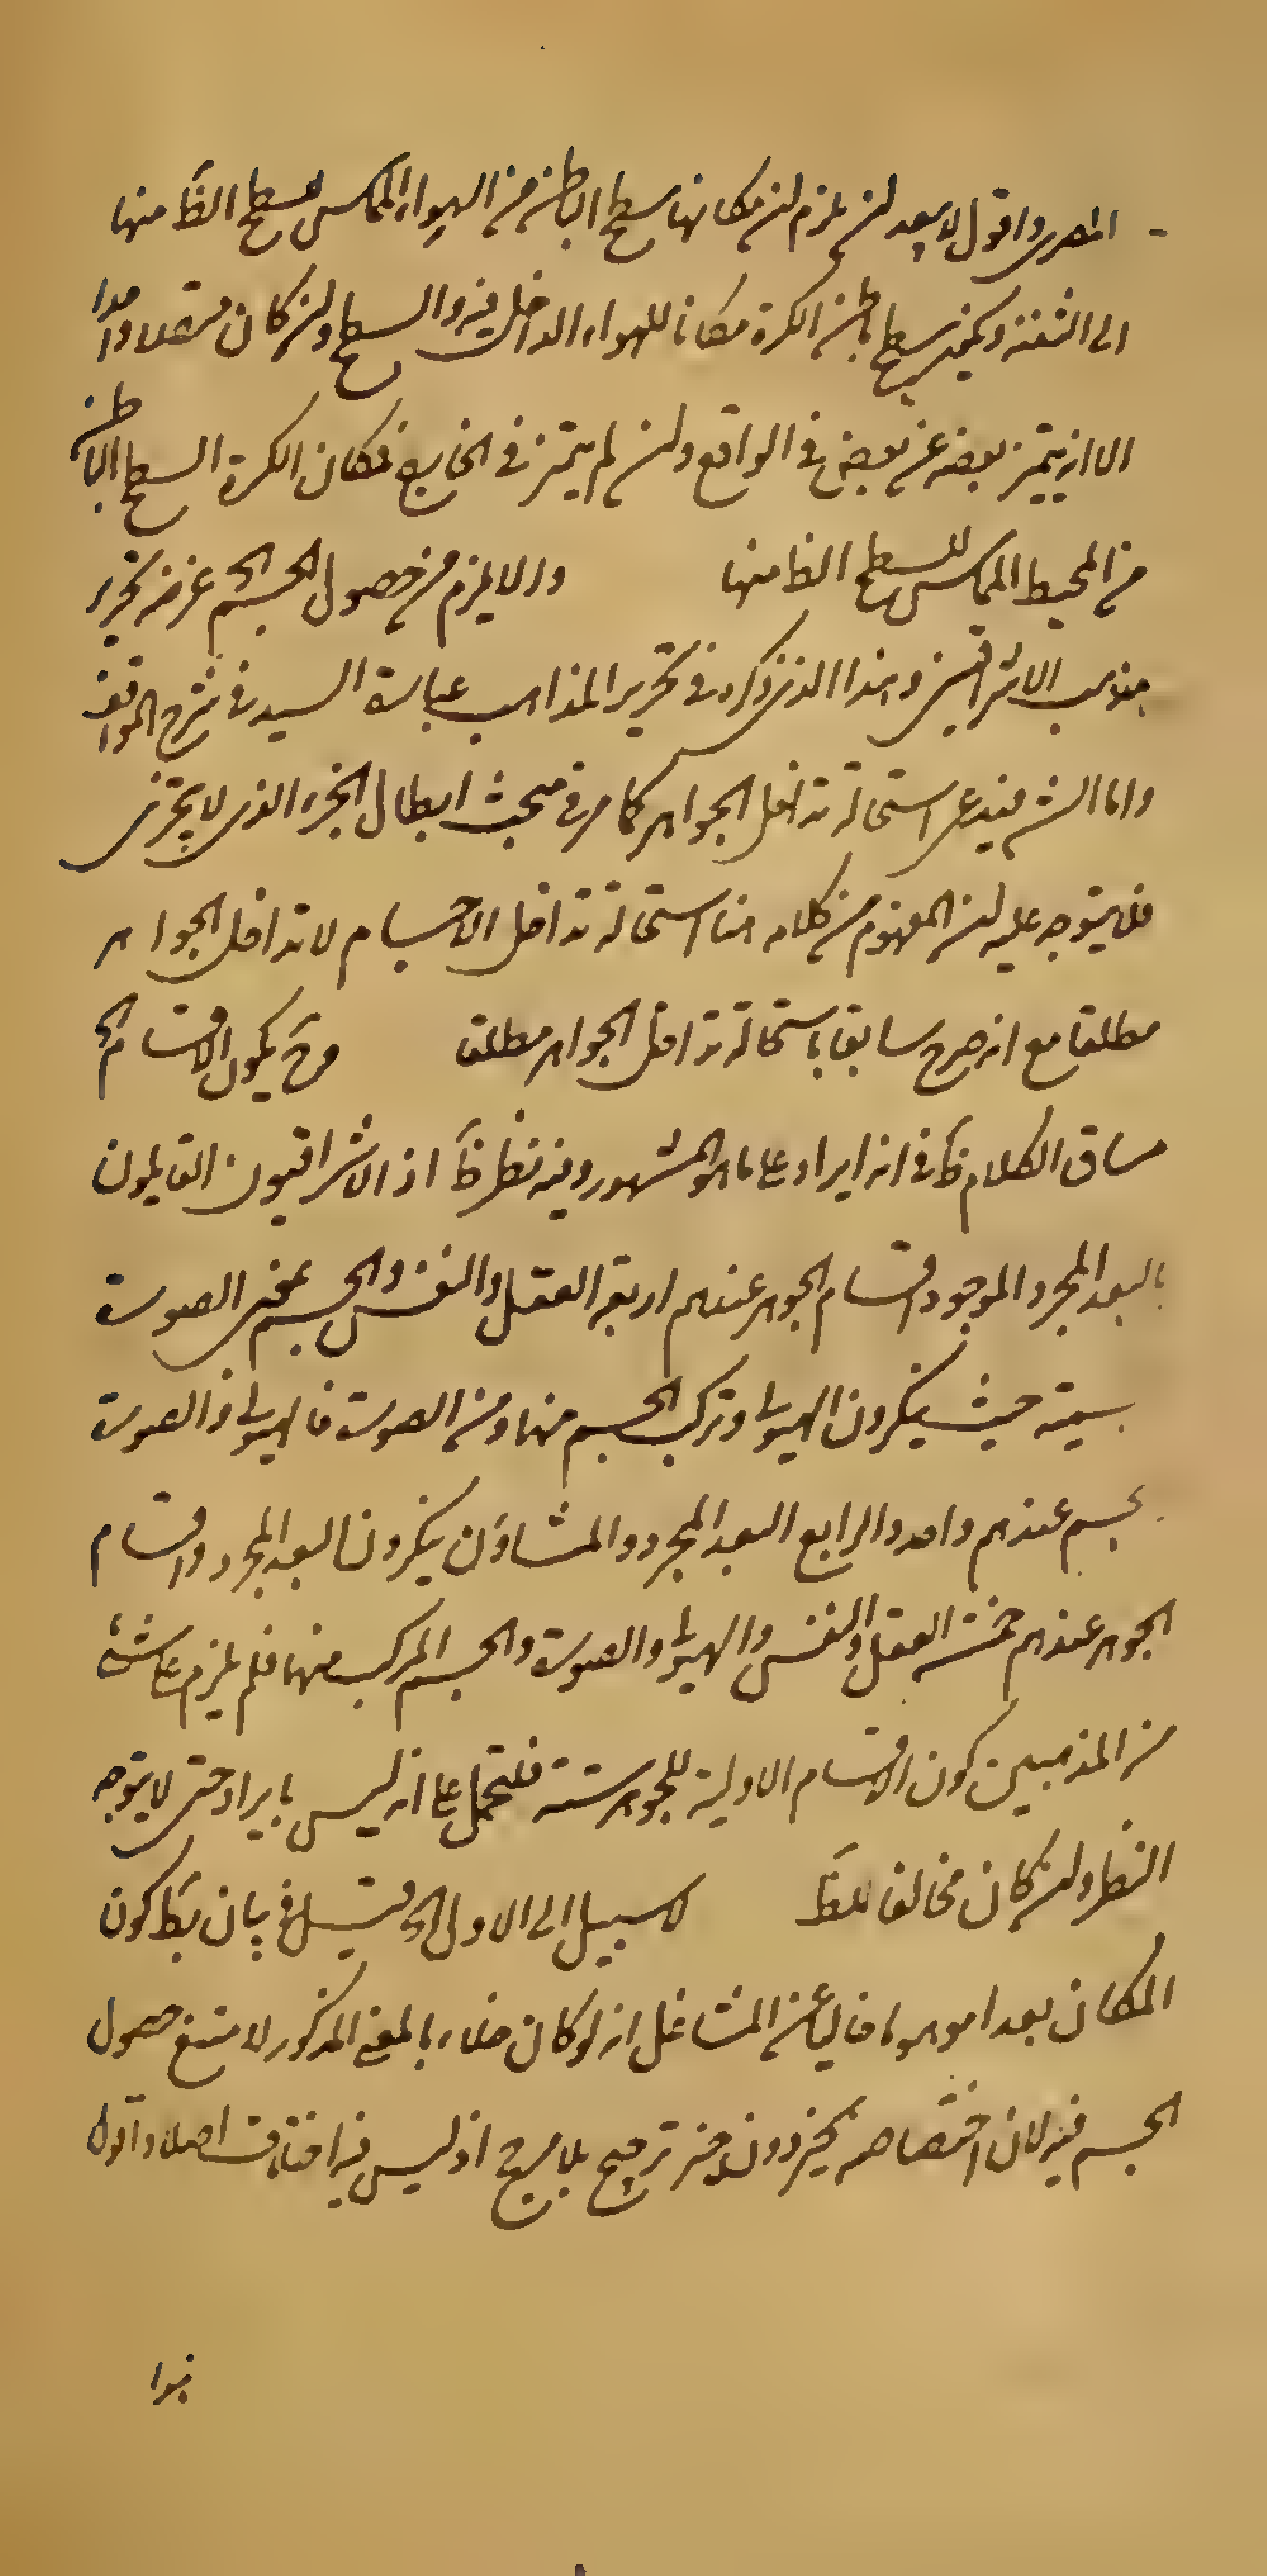 المصرى واقول لا يبعد لن يلزم لن مكانها سطح الباطن من الهواء المماس لسطح الظا منها
الى الثقبة ويكون سطح باطن الكرة مكانا للهواء الداخل فيه والسطح ولن كان متصلا واحدا
الا انه يتميز بعضه عن بعض فى الواقع ولن لم يتميز فى الخارج فمكان الكرة السطح الباطن
من المحيط المماس للسطح الظا منها والا لا يلزم من حصول الجسم الخ غرضه تحرير
مذهب الاشراقيين وهذا الذى ذكره فى تحرير المذاهب عبارة السيد فى شرح المواقف
واما الش فيدعى استحالة تداخل الجواهر كما مر فى مبحث ابطال الجزء الذى لا يتجزى
فلا يتوجه عليه لن المفهوم من كلامه هنا استحالة تداخل الاجسام لا تداخل الجواهر
مطلقا مع انه صرح سابقا باستحالة تداخل الجواهر مطلقا وح يكون الاقسام الخ
مساق الكلام كا فى انه ايراد على ما هو المشهور وفيه نظر ظا اذ الاشراقيون القايلون
بالبعد المجرد الموجود اقسام الجوهر عندهم اربعة العقل والنفس والجسم بمعنى الصورة
سمية حيث ينكرون الهيولى وتركب الجسم منها ومن الصورة فالهيولى والصورة
جسم عندهم واحد والرابع البعد المجرد والمشاؤن ينكرون البعد المجرد واقسام
الجوهر عندهم خمسة العقل والنفس والهيولى والصورة والجسم المركب منهما فلم يلزم على شئ
من المذهبين كون الاقسام الاولية للجوهر ستة فليحمل على انه ليس بايراد حتى لا يتوجه
النظر ولن كان مخالفا للظا لا سبيل الى الاول الخ قيل فى بيان بط كون
المكان بعدا موهوما فاليأمن المشاغل انه لو كان خلاء بالمعنى المذكور لامتنع حصول
الجسم فيه لان اختصاصه بحيز دون حيز ترجيح بلا مرجح اذ ليس فيه اختلاف اصلا واقول